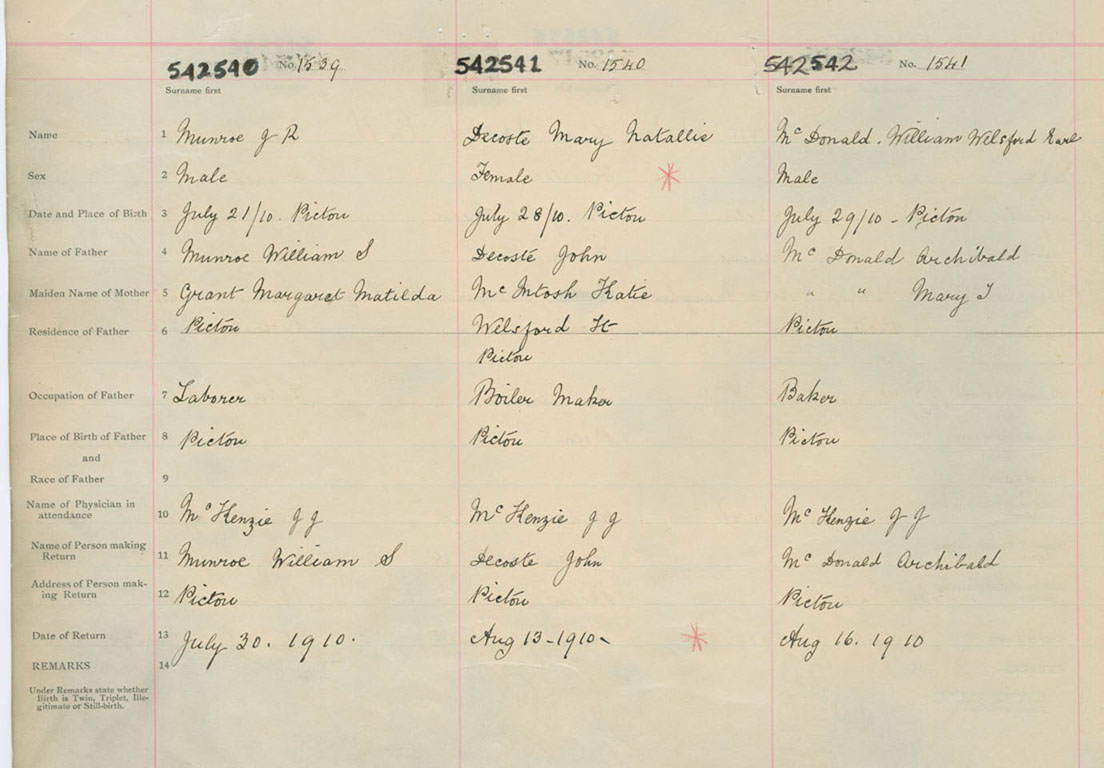 542540 No. 1539 542541 No. 1540 542542 No. 1541
Surname first Surname first Surname first
Name 1 Munroe J R Decoste Mary Natallie Mc Donald. William Welsford Earl
Sex 2 Male Female Male
Date and Place of Birth 3 July 21/10. Pictou July 28/10. Pictou July 29/10 - Pictou
Name of Father 4 Munroe William S Decoste John Mc Donald Archibald
Maiden Name of Mother 5 Grant Margaret Matilda Mc Intosh Katie " " Mary J
Residence of Father 6 Pictou Welsford St Pictou
Pictou
Occupation of Father 7 Laborer Boiler Maker Baker
Place of Birth of Father 8 Pictou Pictou Pictou
and
Race of Father 9
Name of Physician in attendance 10 Mc Kenzie J J Mc Kenzie J J Mc Kenzie J J
Name of Person making Return 11 Munroe William S Decoste John Mc Donald Archibald
Address of Person mak-
ing Return 12 Pictou Pictou Pictou
Date of Return 13 July 30. 1910. Aug 13-1910- Aug 16. 1910
REMARKS 14
Under Remarks state whether
Birth is Twin, Triplet, Ille-
gitimate or Still-birth.